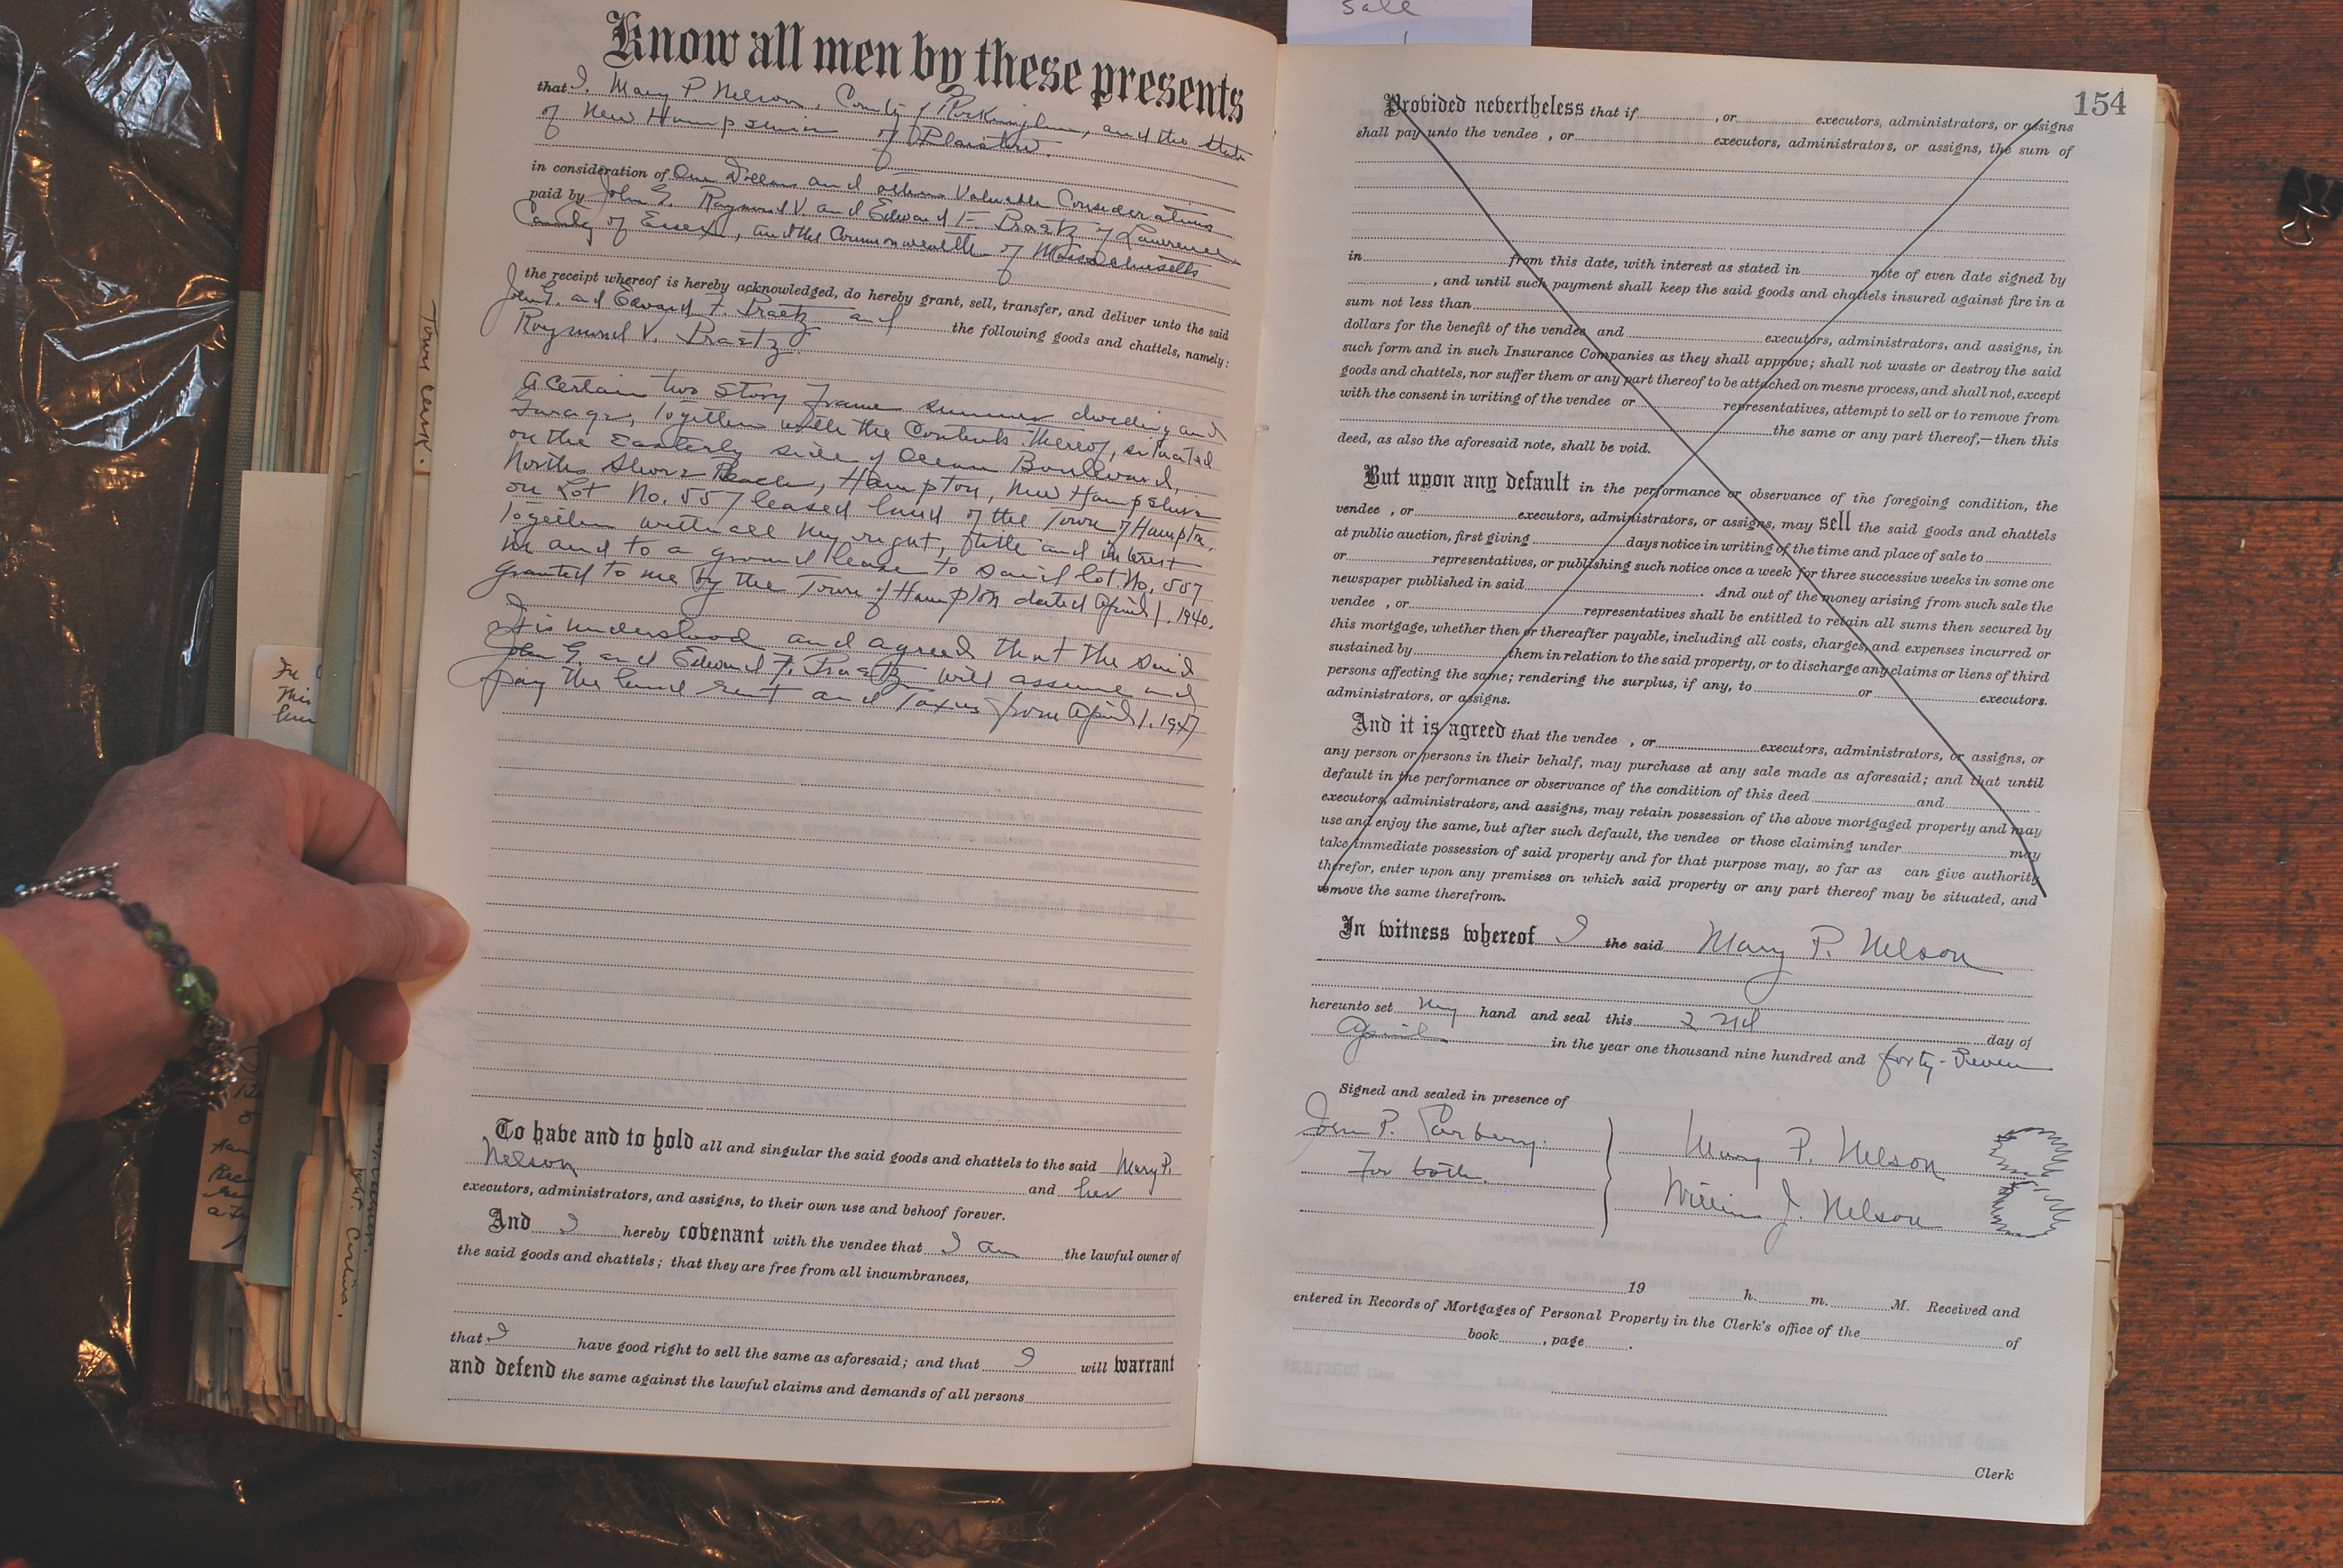 Sale
Know all men by these presents
that I, Mary P. Nelson, County of Rockingham, and the State
of New Hampshire of Plaistow.
in consideration of One Dollar and other Valuable Considerations
paid by John G. Raymond V. and Edward F. Praetz of Lawrence
County of Essex, and the Commonwealth of Massachusetts
the receipt whereof is hereby acknowledged, do hereby grant, sell, transfer, and deliver unto the said
John G. and Edward F. Praetz and the following goods and chattels, namely:
Raymond V. Praetz.
A Certain two Story Frame summer dwelling and
Garage, Together with the Contents Thereof, situated
on the Easterly side of Ocean Boulevard,
North Shore Beach, Hampton, New Hampshire
on Lot No. 557 leased land of the Town of Hampton,
Together with all my right, title and interest
in and to a ground lease to Said lot No. 557
granted to me by the Town of Hampton dated April 1. 1940.
It is understood and agreed that the said
John G. and Edward F. Praetz will assume and
pay the land rent and Taxes from April 1. 1947
To have and to hold all and singular the said goods and chattels to the said Mary P.
Nelson and her
executors, administrators, and assigns, to their own use and behoof forever.
And I hereby covenant with the vendee that I am the lawful owner of
the said goods and chattels; that they are free from all incumbrances,
that I have good right to sell the same as aforesaid; and that I will warrant
and defend the same against the lawful claims and demands of all persons
Town Clerk.
154
Provided nevertheless that if , or executors, administrators, or assigns
shall pay unto the vendee , or executors, administrators, or assigns, the sum of
in from this date, with interest as stated in note of even date signed by
, and until such payment shall keep the said goods and chattels insured against fire in a
sum not less than
dollars for the benefit of the vendee and executors, administrators, and assigns, in
such form and in such Insurance Companies as they shall approve; shall not waste or destroy the said
goods and chattels, nor suffer them or any part thereof to be attached on mesne process, and shall not, except
with the consent in writing of the vendee or representatives, attempt to sell or to remove from
the same or any part thereof,—then this
deed, as also the aforesaid note, shall be void.
But upon any default in the performance or observance of the foregoing condition, the
vendee , or executors, administrators, or assigns, may sell the said goods and chattels
at public auction, first giving days notice in writing of the time and place of sale to
or representatives, or publishing such notice once a week for three successive weeks in some one
newspaper published in said . And out of the money arising from such sale the
vendee , or representatives shall be entitled to retain all sums then secured by
this mortgage, whether then or thereafter payable, including all costs, charges, and expenses incurred or
sustained by them in relation to the said property, or to discharge any claims or liens of third
persons affecting the same; rendering the surplus, if any, to or executors.
administrators, or assigns.
And it is agreed that the vendee , or executors, administrators, or assigns, or
any person or persons in their behalf, may purchase at any sale made as aforesaid; and that until
default in the performance or observance of the condition of this deed and
executors, administrators, and assigns, may retain possession of the above mortgaged property and may
use and enjoy the same, but after such default, the vendee or those claiming under may
take immediate possession of said property and for that purpose may, so far as can give authority
therefor, enter upon any premises on which said property or any part thereof may be situated, and
remove the same therefrom.
In witness whereof I the said Mary P. Nelson
hereunto set my hand and seal this 22nd day of
April in the year one thousand nine hundred and forty-Seven
Signed and sealed in presence of
John P. Carbery. Mary P. Nelson
For both. William J. Nelson
19 h. m. M. Received and
entered in Records of Mortgages of Personal Property in the Clerk's office of the of
book , page .
Clerk